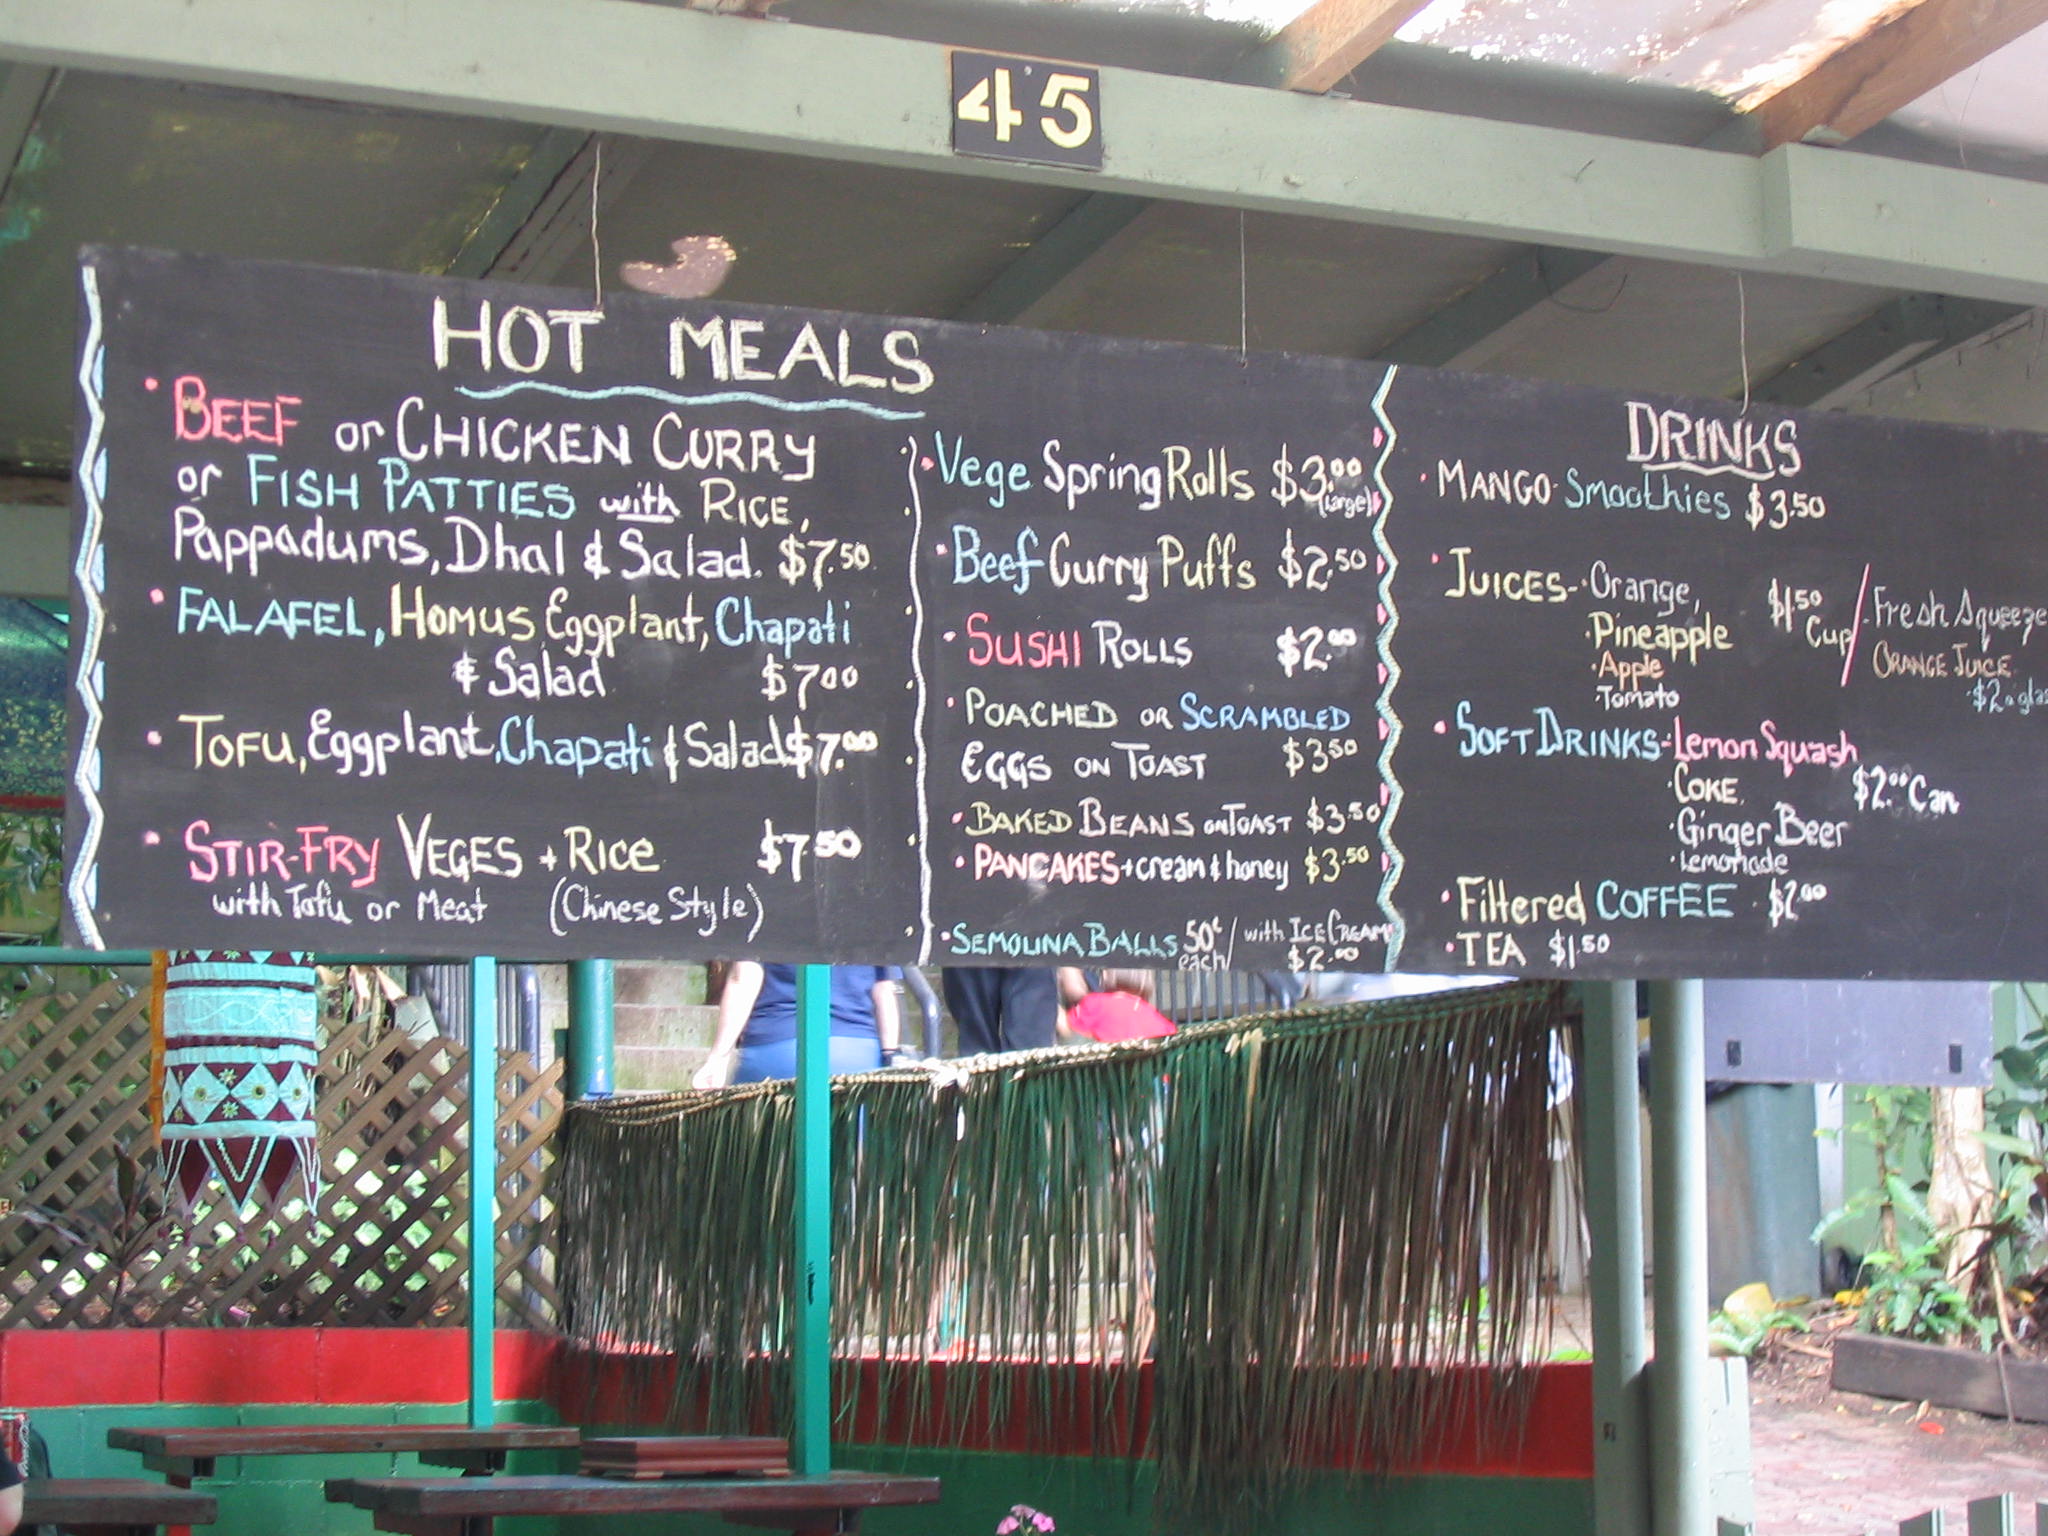 45
HOT MEALS
• BEEF or CHICKEN CURRY
or FISH PATTIES with RICE,
Pappadums, Dhal & Salad. $7.50
• FALAFEL, HOMUS Eggplant, Chapati
& Salad $7.00
• TOFU, Eggplant, Chapati & Salad $7.00
• STIR-FRY VEGES + RICE $7.50
with Tofu or Meat (Chinese Style)
• Vege Spring Rolls $3.00
(large)
• Beef Curry Puffs $2.50
• SUSHI ROLLS $2.00
• POACHED OR SCRAMBLED
EGGS ON TOAST $3.50
• BAKED BEANS ON TOAST $3.50
• PANCAKES + cream & honey $3.50
• SEMOLINA BALLS 50c each / with ICE CREAM $2.00
DRINKS
• MANGO Smoothies $3.50
• JUICES - • Orange, $1.50 Cup / Fresh Squeeze
• Pineapple ORANGE JUICE
• Apple $2 a
• Tomato
• SOFT DRINKS - Lemon Squash
• COKE. $2.00 Can
• Ginger Beer
• Lemonade
• Filtered COFFEE • $2.00
• TEA $1.50